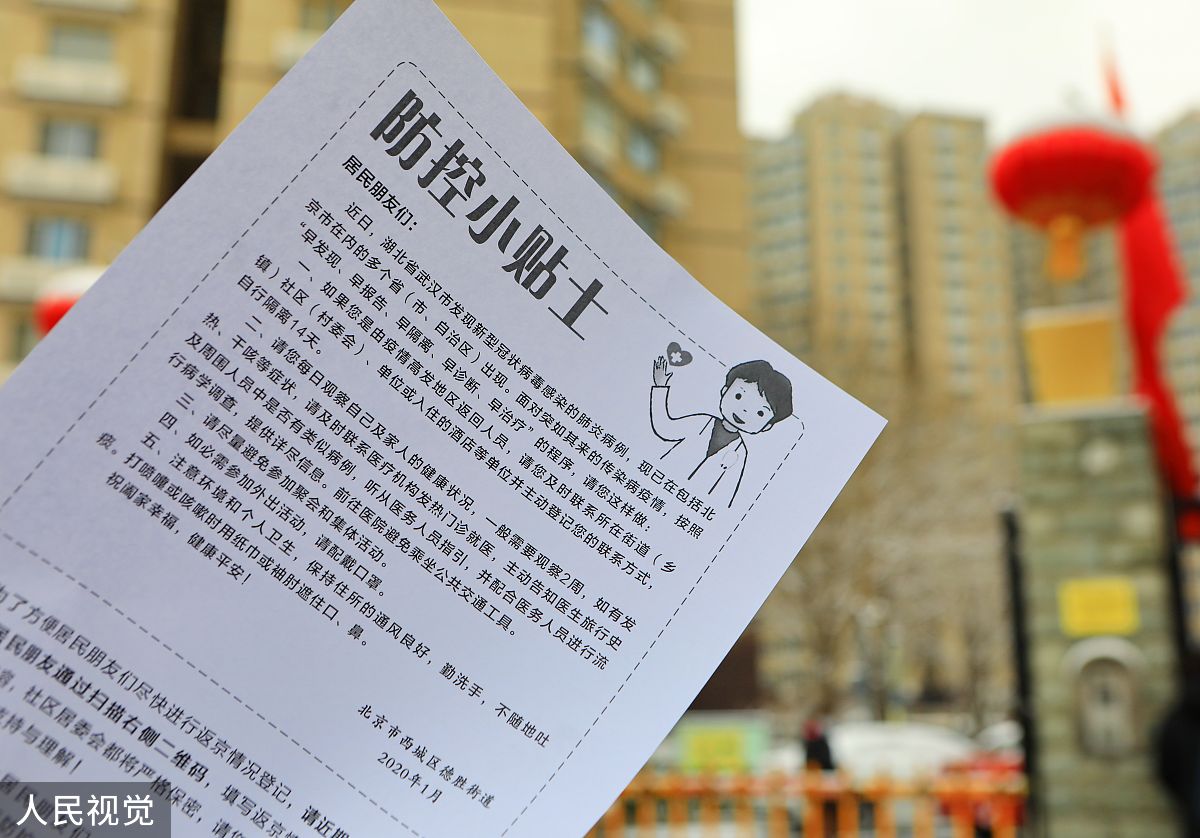 防控小贴士
居民朋友们：
近日，湖北省武汉市发现新型冠状病毒感染的肺炎病例，现已在包括北
京市在内的多个省（市、自治区）出现。面对突如其来的传染病疫情，按照
“早发现、早报告、早隔离、早诊断、早治疗”的程序，请您这样做：
一、如果您是由疫情高发地区返回人员，请您及时联系所在街道（乡
镇）社区（村委会）、单位或入住的酒店等单位并主动登记您的联系方式，
自行隔离14天。
二、请您每日观察自己及家人的健康状况，一般需要观察2周，如有发
热、干咳等症状，请及时联系医疗机构发热门诊就医，主动告知医生旅行史
及周围人员中是否有类似病例，听从医务人员指引，并配合医务人员进行流
行病学调查，提供详尽信息。前往医院避免乘坐公共交通工具。
三、请尽量避免参加聚会和集体活动。
四、如必需参加外出活动，请配戴口罩。
五、注意环境和个人卫生，保持住所的通风良好，勤洗手，不随地吐
痰。打喷嚏或咳嗽时用纸巾或袖肘遮住口、鼻。
祝阖家幸福，健康平安！
北京市西城区德胜街道
2020年1月
了方便居民朋友们尽快进行返京情况登记，请近期
居民朋友通过扫描右侧二维码，填写返京情
社区居委会都将严格保密，请您
支持与理解！
人民视觉